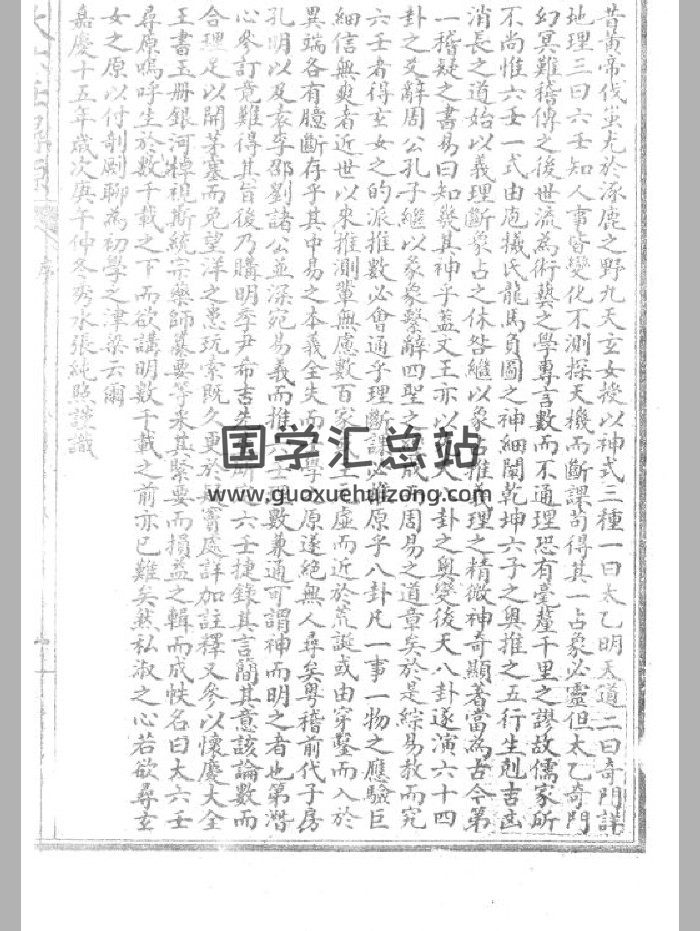 昔黃帝伐蚩尤於涿鹿之野九天玄女授以神式三種一曰太乙明天道二曰奇門詳
地理三曰六壬知人事皆變化不測探天機而斷課苟得其一占象必靈但太乙奇門
幻冥難稽傳之後世流為術藝之學專言數而不通理恐有毫釐千里之謬故儒家所
不尚惟六壬一式由庖犧氏龍馬負圖之神細闡乾坤六子之與推之五行生剋吉凶
消長之道始以義理斷象占之休咎繼以象占推義理之精微神奇顯著當為古今第
一稽疑之書易曰知幾其神乎蓋文王亦以天八卦之奧變後天八卦遂演六十四
卦之爻辭周公孔子繼以彖象繫辭四聖之成而周易之道章矣於是綜易教而究
六壬者得玄女之的派推數必會通乎理斷課必推原乎八卦凡一事一物之應驗巨
細信無爽者近世以來推測輩無慮數百家人主虛而近於荒誕或由穿鑿而入於
異端各有臆斷存乎其中易之本義全失而學原遂絕無人尋矣粵稽前代子房
孔明以及袁李邵劉諸公並深宛易義而推六壬理數兼通可謂神而明之者也第潛
心參訂竟難得其旨後乃購明季尹希吉先六壬捷錄其言簡其意該論數而
合理足以開茅塞而免望洋之患玩索既久更於竇處詳加註釋又參以懷慶大全
王書玉册銀河棹視斯統宗藥師纂要等采其緊要而損益之輯而成帙名曰大六壬
尋原嗚呼生於數千載之下而欲講明數千載之前亦已難矣然私淑之心若欲尋玄
女之原以付剞劂聊為初學之津梁云爾
嘉慶十五年歲次庚午仲冬秀水張純照謹識
国学汇总站
www.guoxuehuizong.com